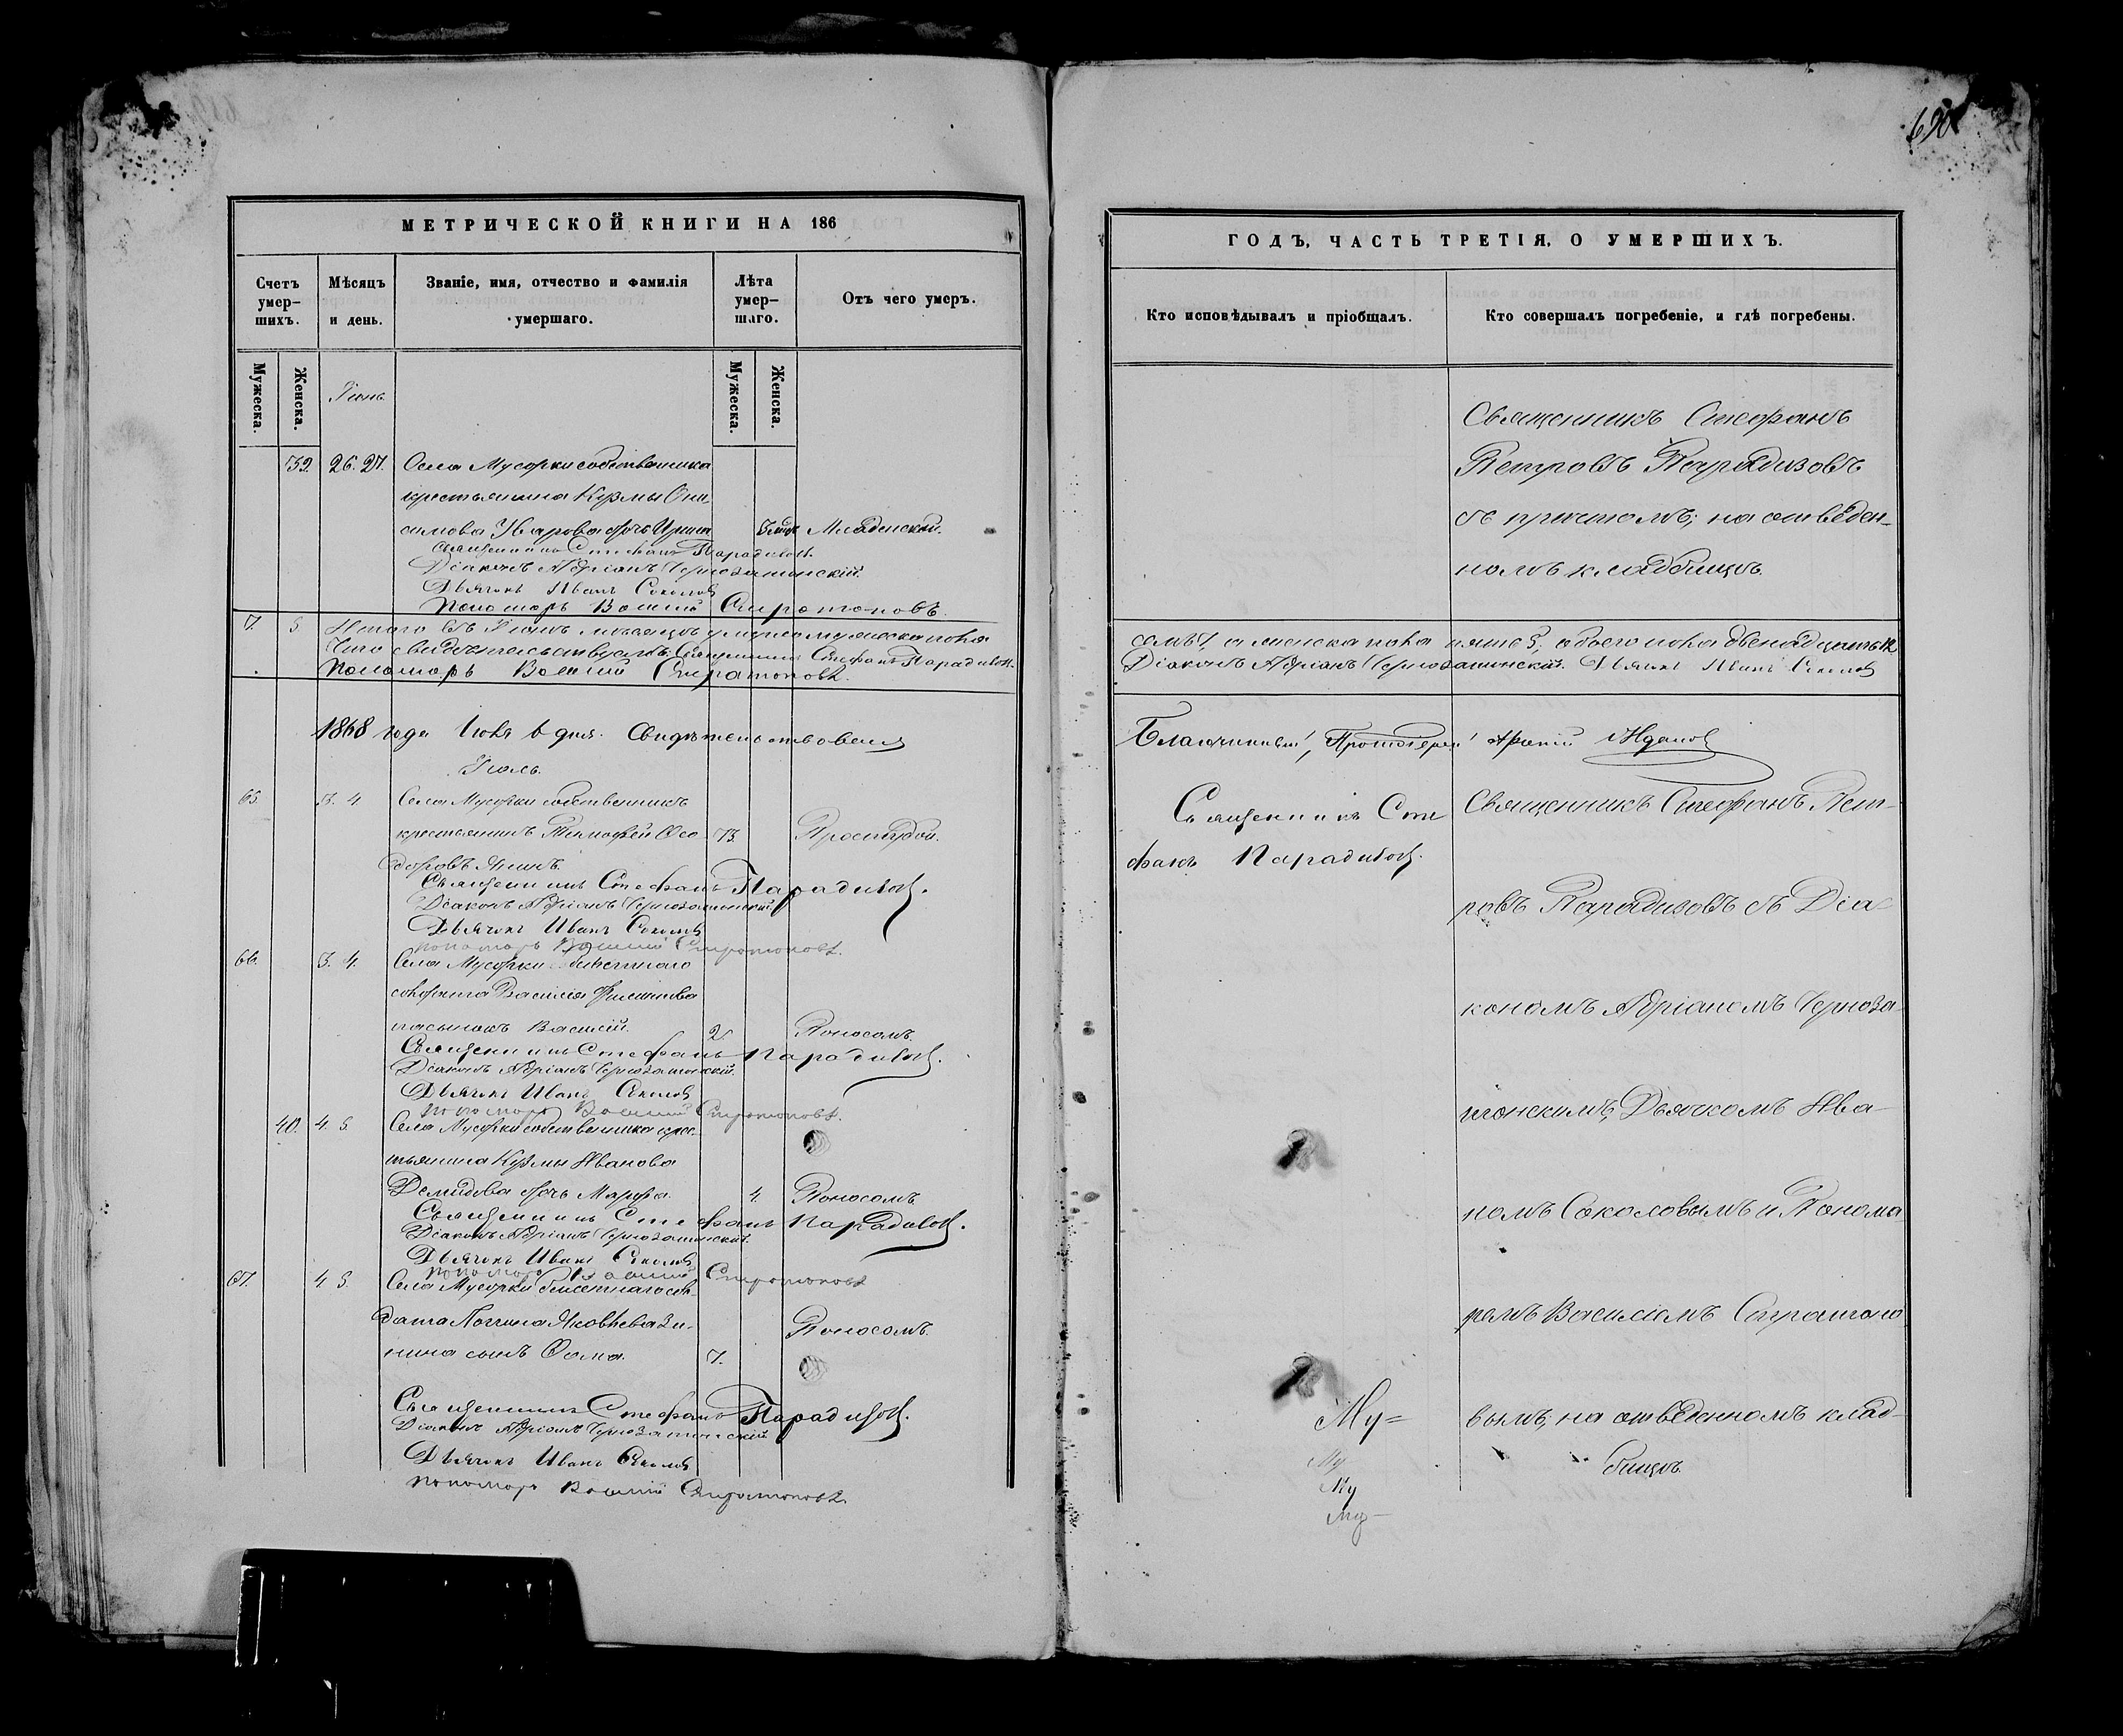 690
МЕТРИЧЕСКОЙ КНИГИ НА 186
Счетъ умер-шихъ.
Мѣсяцъ и день.
Званіе, имя, отчество и фамилія умершаго.
Лѣта умер-шаго.
Отъ чего умеръ.
Мужеска.
Женска.
Мужеска.
Женска.
Іюнь.
39. 26. 27. Села Мусорки собственника
крестьянина Кузмы Они-
симова Уварова дочь Ирина Младенской.
Священникъ Стефанъ Парадизовъ.
Діаконъ Адріанъ Чернозатонскій.
Дьячокъ Иванъ Соколовъ
Пономарь Василій Стратоновъ.
7. 5 Итого въ Іюнѣ мѣсяцѣ умерло мужеска пола
Чего свидѣтельствуемъ: Священникъ Стефанъ Парадизовъ.
Пономарь Василій Стратоновъ.
1868 года Іюля 6 дня. Свидѣтельствовалъ
Іюль.
65. 3. 4 Села Мусорки собственникъ
крестьянинъ Тимофей Ѳео- 73. Простудой.
доровъ Янинъ.
Священникъ Стефанъ Парадизовъ.
Діаконъ Адріанъ Чернозатонскій
Дьячокъ Иванъ Соколовъ
Пономарь Василій Стратоновъ.
66. 3. 4. Села Мусорки
солдата Василія Филипова
пасынокъ Василій. 2. Поносомъ.
Священникъ Стефанъ Парадизовъ.
Діаконъ Адріанъ Чернозатонскій.
Дьячокъ Иванъ Соколовъ
Пономарь Василій Стратоновъ.
40. 4. 5. Села Мусорки собственника крес-
тьянина Кузмы Иванова
Демидова дочь Марфа. 4. Поносомъ.
Священникъ Стефанъ Парадизовъ.
Діаконъ Адріанъ Чернозатонскій.
Дьячокъ Иванъ Соколовъ
Пономарь Василій Стратоновъ
67. 4 5. Села Мусорки билетнаго сол-
дата Логгина Яковлева Зи-
нина сынъ Ѳома. 7. Поносомъ.
Священникъ Стефанъ Парадизовъ.
Діаконъ Адріанъ Чернозатонскій
Дьячокъ Иванъ Соколовъ
Пономарь Василій Стратоновъ.
ГОДЪ, ЧАСТЬ ТРЕТІЯ, О УМЕРШИХЪ.
Кто исповѣдывалъ и пріобщалъ.
Кто совершалъ погребеніе, и гдѣ погребены.
Священникъ Стефанъ
Петровъ Парадизовъ
съ причтомъ; на отведен-
номъ кладбищѣ.
семь 7, а женска пола пять 5; обоего пола двенадцать 12
Діаконъ Адріанъ Чернозатонскій. Дьячокъ Иванъ Соколовъ
Благочинный, Протоіерей Ждановъ
Священникъ Сте
фанъ Парадизовъ.
Священникъ Стефанъ Пет-
ровъ Парадизовъ съ Діа-
кономъ Адріаномъ Черноза-
тонскимъ, Дьячкомъ Ива-
номъ Соколовымъ и Понома-
ремъ Василіемъ Стратоно-
вымъ; на отведенномъ клад-
бищѣ.
Му=
Му
Му
Му-